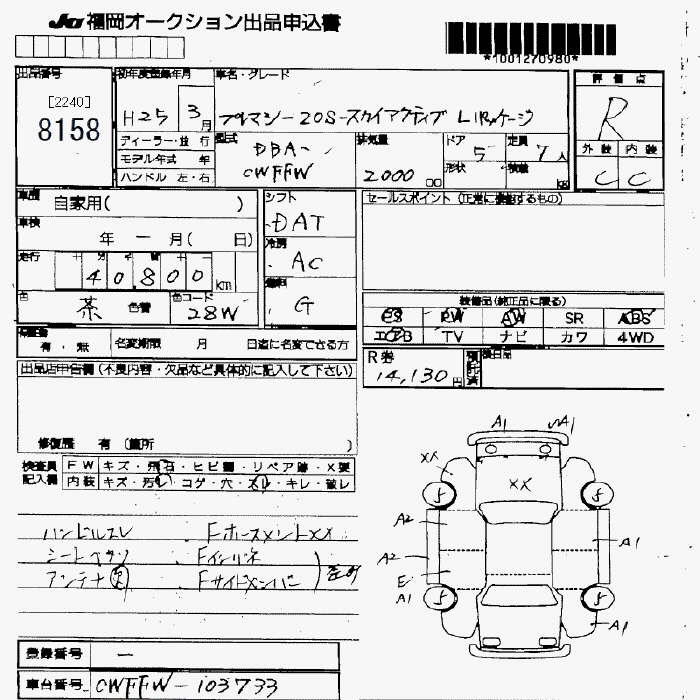 JU 福岡オークション出品申込書
*1001270980*
出品番号
[2240]
8158
初年度登録年月
H25 3月
車名・グレード
プレマシー 20S-スカイアクティブ Lパッケージ
評価点
R
外装 内装
C C
ディーラー・並行
モデル年式 年
ハンドル 左・右
型式
DBA-
CWFFW
排気量
2000 cc
ドア 5
形状
定員 7人
積載 kg
車歴 自家用( )
車検 年 ー 月( 日)
走行 十 万 千 百 十 一
40,800 km
色 茶 色替
色コード 28W
シフト
DAT
冷房
AC
燃料
G
セールスポイント (正常に機能するもの)
装備品(純正品に限る)
PS PW AW SR ABS
エアB TV ナビ カワ 4WD
R券
14,130円
預託済
後日品
保証書
有・無
名変期限 月 日迄に名変できる方
出品店申告欄(不良内容・欠品など具体的に記入して下さい)
修復歴 有 (箇所 )
検査員記入欄
FW キズ・飛石・ヒビ割・リペア跡・X要
内装 キズ・汚レ・コゲ・穴・スレ・キレ・破レ
ハンドルスレ
シートヘタリ
アンテナ欠
Fホースメント XX
Fインパネ
Fサイドメンバー
A1 A1
XX
XX
A2
A2
E
A1
A1
A1
登録番号 ー
車台番号 CWFFW-103733